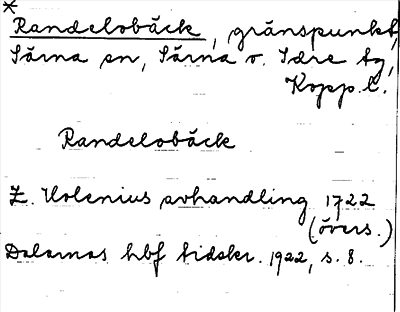 *
Randelobäck, gränspunkt,
Särna sn, Särna o. Idre tg,
Kopp. l.
Randelobäck
Z. Holenius avhandling 1722
(övers.)
Dalarnas hbf tidskr. 1922, s. 8.